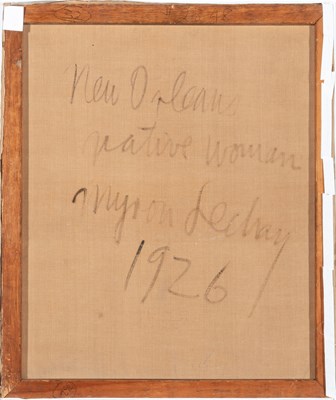 New Orleans
native woman
Myron Lechay
1926